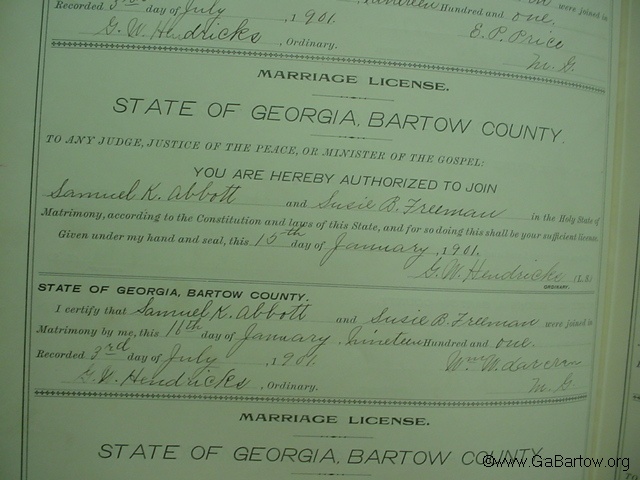 Hundred and one, were joined in
Recorded 3rd day of July, 1901. E. P. Price
G. W. Hendricks, Ordinary. M. G.
MARRIAGE LICENSE.
STATE OF GEORGIA, BARTOW COUNTY.
TO ANY JUDGE, JUSTICE OF THE PEACE, OR MINISTER OF THE GOSPEL:
YOU ARE HEREBY AUTHORIZED TO JOIN
Samuel K. Abbott and Susie B. Freeman in the Holy State of
Matrimony, according to the Constitution and laws of this State, and for so doing this shall be your sufficient license.
Given under my hand and seal, this 15th day of January, 1901.
G. W. Hendricks (L.S.)
ORDINARY.
STATE OF GEORGIA, BARTOW COUNTY.
I certify that Samuel K. Abbott and Susie B. Freeman were joined in
Matrimony by me, this 16th day of January, Nineteen Hundred and one.
Recorded 3rd day of July, 1901. Wm W.
G. W. Hendricks, Ordinary. M. G
MARRIAGE LICENSE.
STATE OF GEORGIA, BARTOW COUNTY.
©www.GaBartow.org